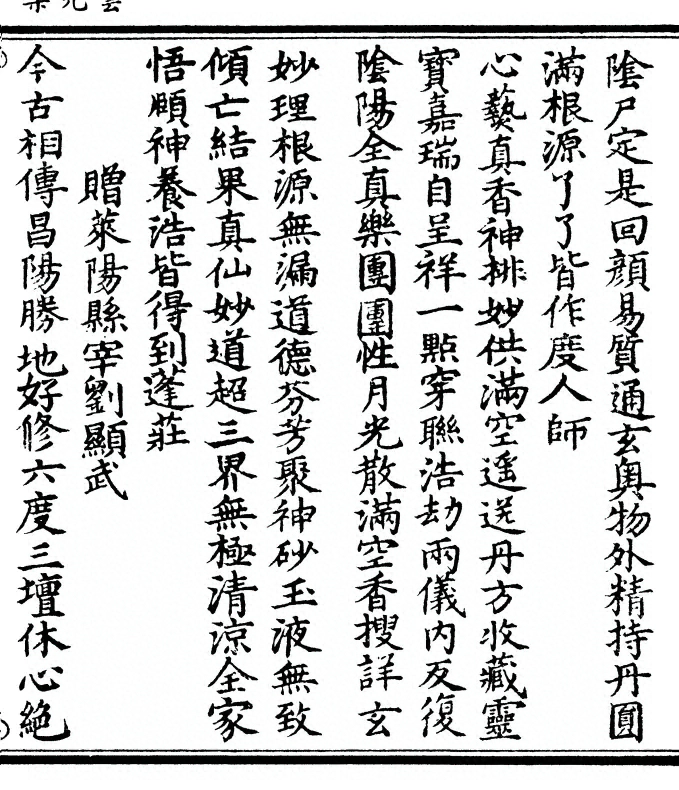 陰尸定是回顔易質通玄奥物外精持丹圓
滿根源了了皆作度人師
心藝真香神排妙供滿空遥送丹方收藏靈
寶嘉瑞自呈祥一點穿聯浩劫兩儀内反復
陰陽全真樂團團性月光散滿空香搜詳玄
妙理根源無漏道德芬芳聚神砂玉液無致
傾亡結果真仙妙道超三界無極清涼全家
悟願神養浩皆得到蓬莊
贈萊陽縣宰劉顯武
今古相傳昌陽勝地好修六度三壇休心絶